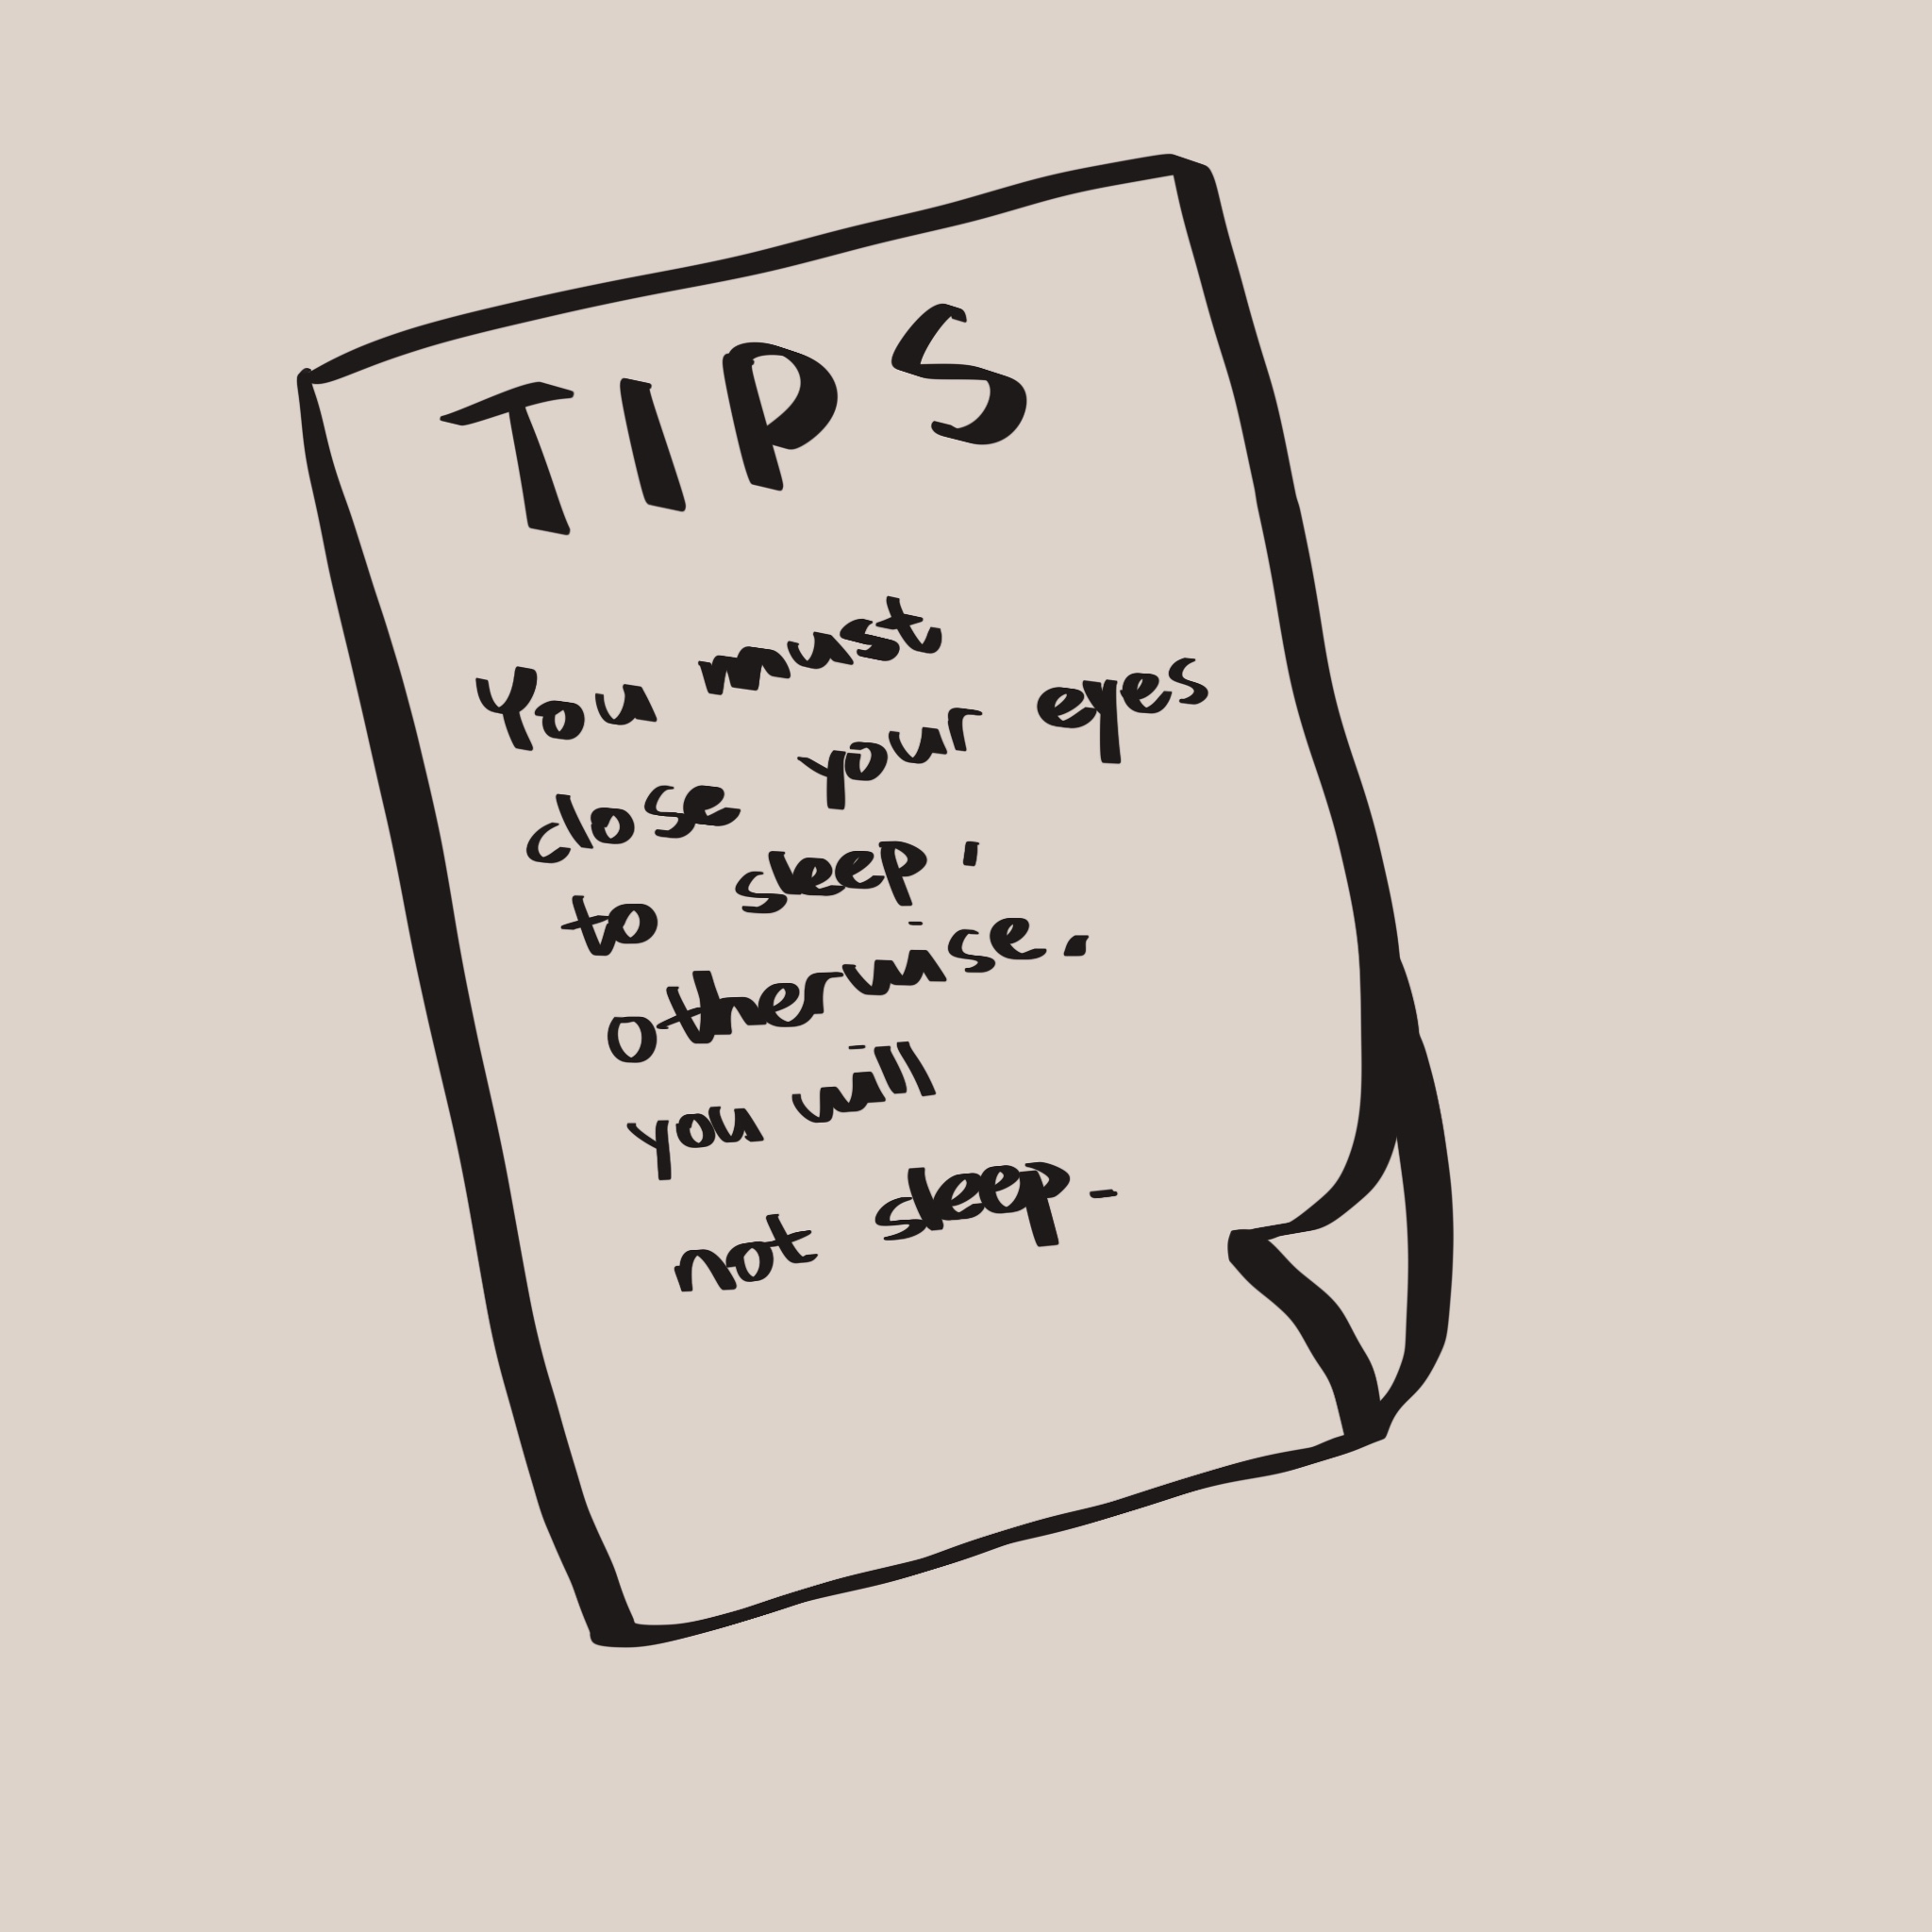 TIPS
You must
close your eyes
to sleep,
otherwise,
you will
not sleep.